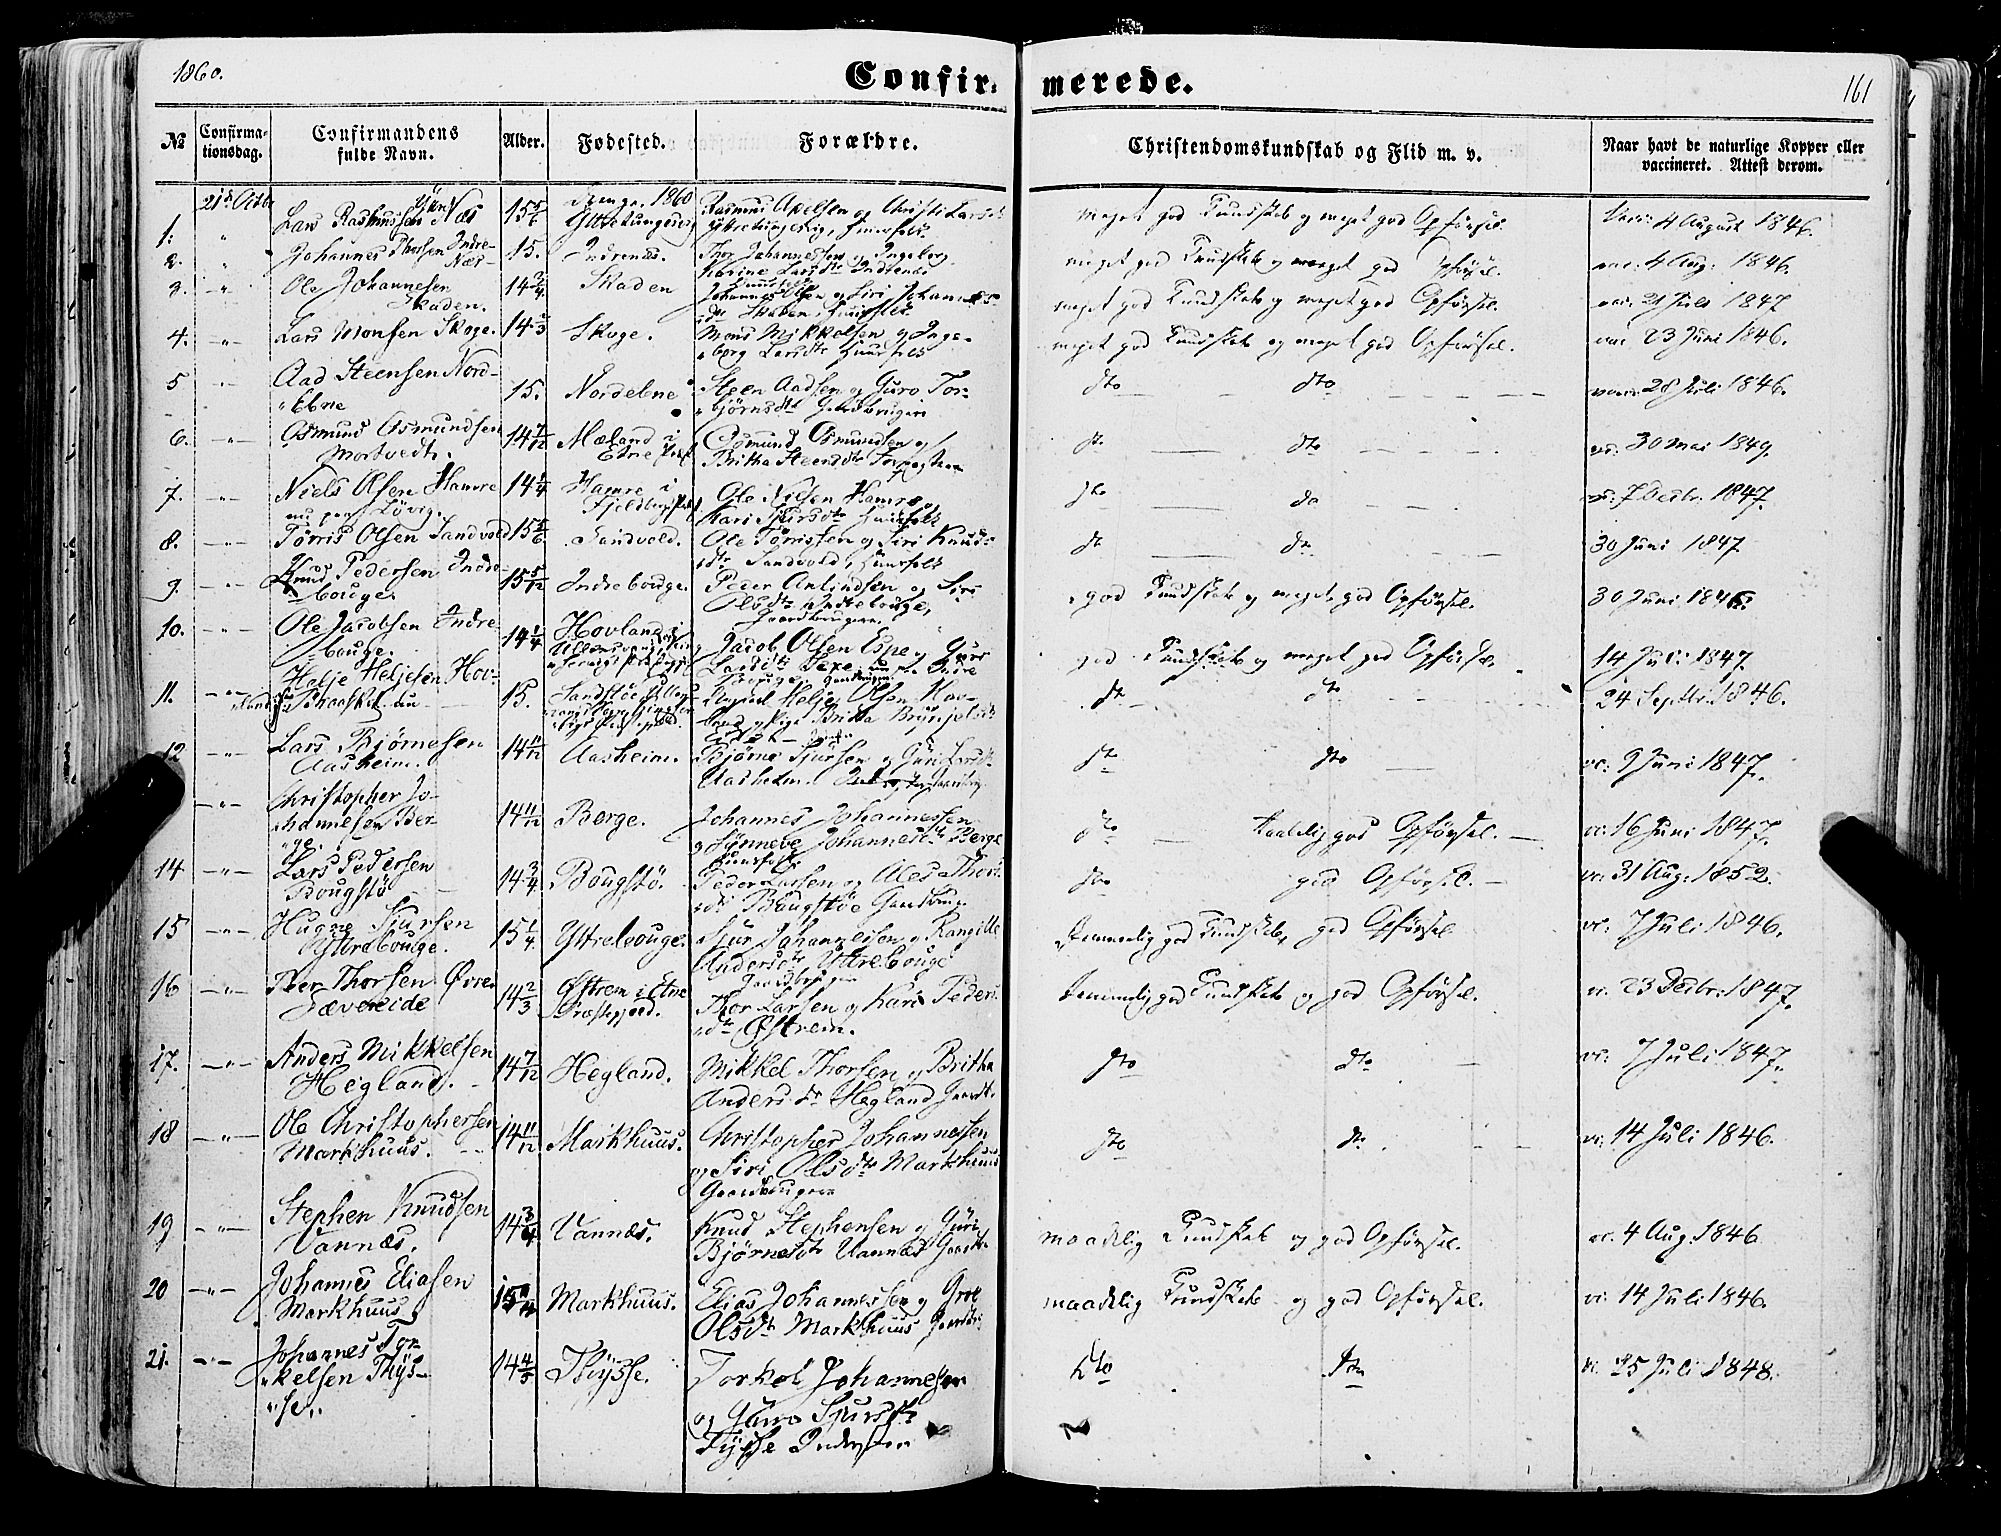 1860.
Confirmerede.
161
№ Confirmationsdag. Confirmandens fulde Navn. Alder. Fødested. Forældre. Christendomskundskab og Flid m. v. Naar havt de naturlige Kopper eller vaccineret. Attest derom.
21de Octbr
Drenge. 1860
1. Lars Rasmussen Næs 15 Rasmus Axelsen og Christi Larsd meget god Kundskab og meget god Opførsel. 4 August 1846.
2. Johannes Thorsen Indre-
Næs 15. Indrenæs. Thor Johannessen og Ingeborg
Karine Larsdtr Indrenæs meget god Kundskab og meget god Opførsel. vac: 4 Aug: 1846.
3. Ole Johannesen
Skaden. 14 3/4 Skaden Johannes Olsen og Siri Johannes
dtr Skaden, Huusfolk meget god Kundskab og meget god Opførsel. vac. 21 Juli 1847
4. Lars Monsen Skoge. 14 2/3 Skoge. Mons Mikkelsen og Inge-
borg Larsdtr Huusfolk meget god Kundskab og meget god Opførsel. vac 23 Juni 1846.
5 Aad Steensen Nord-
"Ebne 15. Nordebne Steen Aadsen og Guro Tor-
"bjørnsdtr Gaardbrugere dto dto 28 Juli 1846.
6. Osmund Osmundsen
Mortvedt. 14 7/12 Mæland i
Etne Osmund Osmundsen og
Britha Steensdtr dto dto vc. 30 Mai 1849.
7. Niels Olsen Hamre
nu paa Løvig. 14 1/4 Hamre i
Fjeldberg Ole Nielsen Hamre og
Kari Sjursdtr Huusfolk dto do vc: 7 Decbr. 1847.
8. Tørris Olsen Sandvold 15 Sandvold. Ole Tørrissen og Siri Knuds-
dtr Sandvold, Huusfolk dto dto 30 Juni 1847
9. Knud Pedersen Indre-
bouge. 15 5/12 Indrebouge. Peder Antindsen og Siri
Olsdtr Indrebouge,
Gaardbrugere. god Kundskab og meget god Opførsel. 30 Juni 1846.
10. Ole Jacobsen Indre
bouge. 14 1/4 Hovland i Jacob Olsen Espe og Guro
Larsdtr god Kundskab og meget god Opførsel. 14 Juli 1847.
11. Helje Heljesen Hov-
land 15. Helje Olsen Hov-
land og Pige Britta Brynjelsdt dto dto 24 Septbr. 1846.
12 Lars Bjørnesen
Aasheim. 14 11/12 Aasheim. Bjørne Sjursen og Guri Larsdt
Aasheim. dto dto vc: 9 Juni 1847.
Christopher Jo-
"hannesen Ber-
"ge. 14 11/12 Berge. Johannes Johannessen
og Synneve Johannesdtr Berge
Huusfolk dto Maadelig god Opførsel. vc: 16 Juni 1847.
14 Lars Pedersen
Bougstø 14 3/4 Bougstø. Peder Larsen og Ales Thors-
dtr Bougstøe dto god Opførsel. vc: 31 Aug: 1852.
15 Hugne Sjursen
Yttrebouge. 15 1/4 Yttrebouge. Sjur Johannessen og Rangille
Andersdtr Yttrebouge
Gaardbruger Temmelig god Kundskab, god Opførsel vc: 7 Juli 1846.
16 Iver Thorsen Øvre
Sævereide 14 2/3 Østrem i Etne
Præstegjæld. Thor Larsen og Kari Peders
dtr Østrem. Temmelig god Kundskab og god Opførsel. vc. 23 Decbr: 1847.
17. Anders Mikkelsen
Hegland. 14 7/12 Hegland. Mikkel Thorsen og Britha
Andersdtr Hegland Gaardb. dto dto vc: 7 Juli 1847.
18 Ole Christophersen
Markhuus. 14 11/12 Markhuus. Christopher Johannessen
og Siri Olsdtr Markhuus
Gaardbrugere dto dto vc: 14 Juli 1846.
19 Stephen Knudsen
Vannæs. 14 3/4 Vannæs. Knud Stephensen og Guri
Bjørnesdtr Vannæs Gaardb. maadelig Kundskab og god Opførsel. vc. 4 Aug. 1846
20 Johannes Eliasen
Markhuus Markhuus. Elias Johannessen og Groe
Olsdtr Markhuus maadelig Kundskab og god Opførsel. vc: 14 Juli 1846.
21. Johannes Tor-
"kelsen Thys-
"se. 14 4/5 Thysse. Torkel Johannesen
og Guro Sjursdtr
Tysse dto dto vc. 25 Juli 1848.